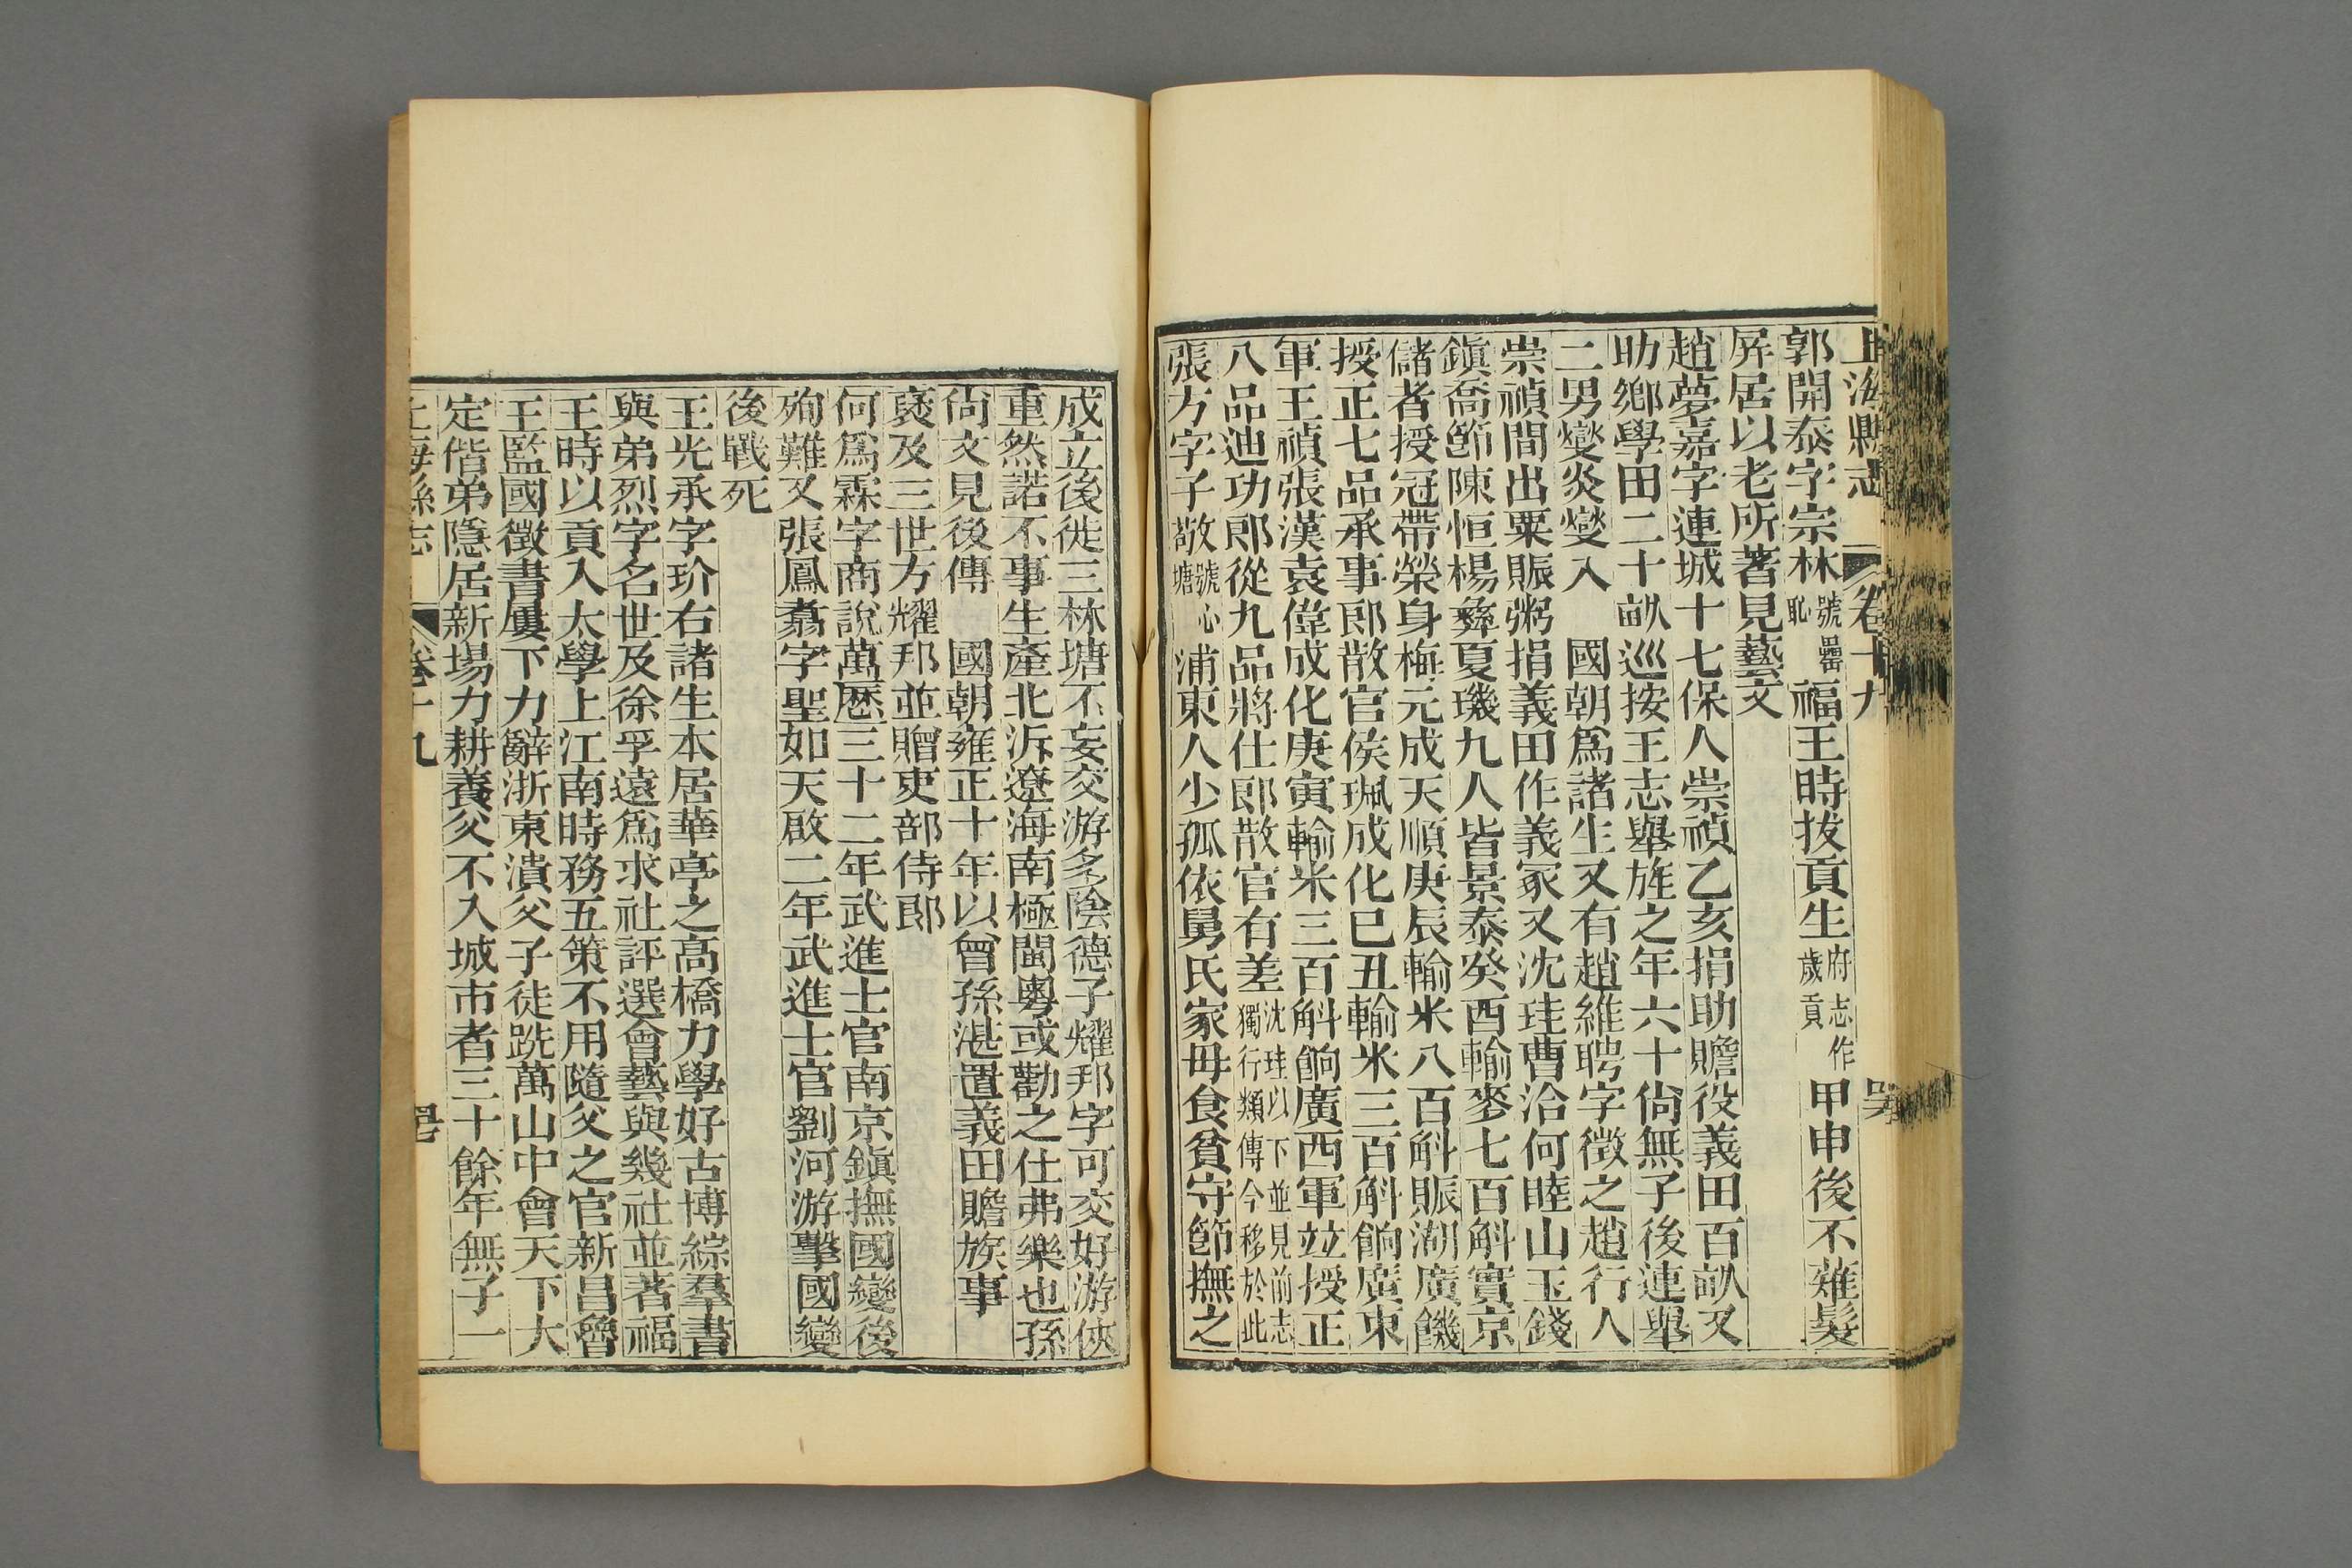 上海縣志　卷十九
郭開泰字宗林號罍恥福王時拔貢生府志作歲貢甲申後不薙髮
屏居以老所著見藝文
趙夢嘉字連城十七保人崇禎乙亥捐助贍役義田百畝又
助鄉學田二十畝巡按王志舉旌之年六十尙無子後連舉
二男燮炎燮入　國朝爲諸生又有趙維聘字徵之趙行人
崇禎間出粟賑粥捐義田作義冢又沈珪曹洽何睦山玉錢
鎭喬節陳恒楊彝夏璣九人皆景泰癸酉輸麥七百斛實京
儲者授冠帶榮身梅元成天順庚辰輸米八百斛賑湖廣饑
授正七品承事郎散官侯珮成化巳丑輸米三百斛餉廣東
軍王禎張漢袁偉成化庚寅輸米三百斛餉廣西軍竝授正
八品迪功郎從九品將仕郎散官有差沈珪以下並見前志獨行類傳今移於此
張方字子敬號心塘浦東人少孤依舅氏家毋食貧守節撫之
成立後徙三林塘不妄交游多陰德子耀邦字可交好游俠
重然諾不事生產北泝遼海南極閩粵或勸之仕弗樂也孫
尙文見後傳　國朝雍正十年以曾孫湛置義田贍族事
褒及三世方耀邦並贈吏部侍郎
何爲霖字商說萬厯三十二年武進士官南京鎭撫國變後
殉難又張鳳翥字聖如天啟二年武進士官劉河游擊國變
後戰死
王光承字玠右諸生本居華亭之高橋力學好古博綜羣書
與弟烈字名世及徐孚遠爲求社評選會藝與幾社並著福
王時以貢入太學上江南時務五策不用隨父之官新昌魯
王監國徵書屢下力辭浙東潰父子徒跣萬山中會天下大
定偕弟隱居新場力耕養父不入城市者三十餘年無子一
上海縣志　卷十九